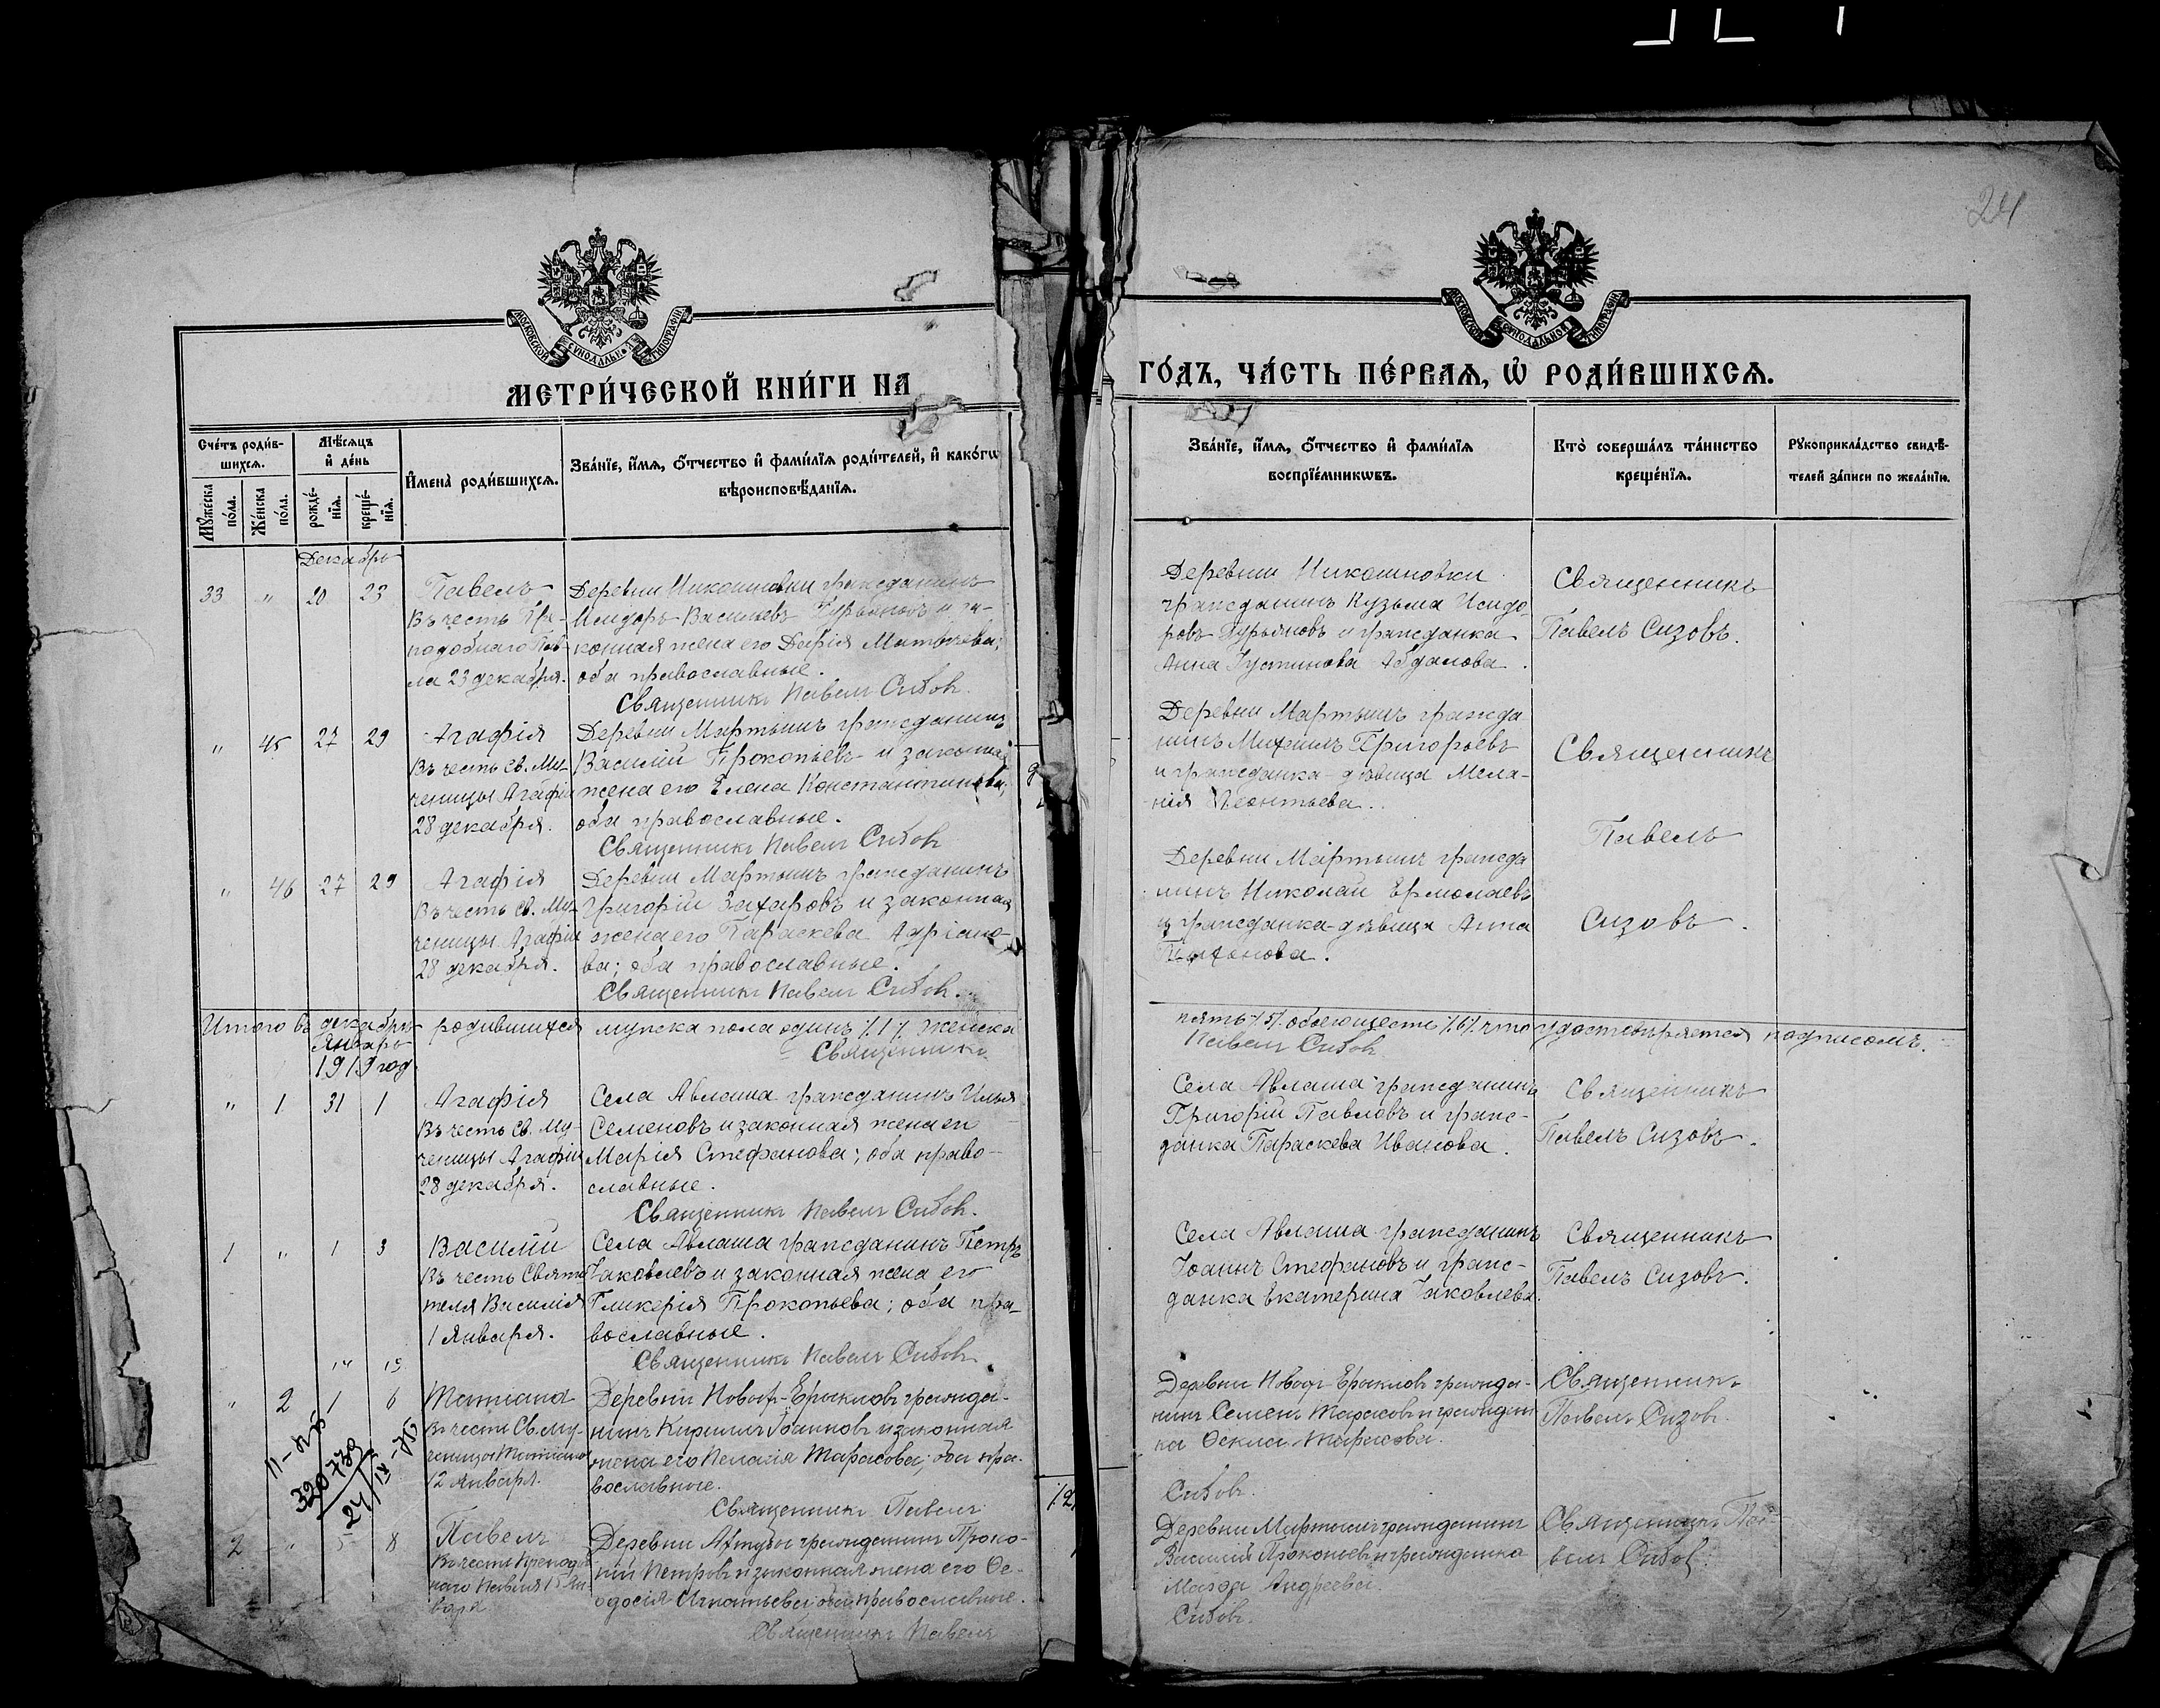 24
МОСКОВСКОЙ СѴНОДАЛЬНОЙ ТИПОГРАФІИ
МОСКОВСКОЙ СѴНОДАЛЬНОЙ ТИПОГРАФІИ
МЕТРИ́ЧЕСКОЙ КНИ́ГИ НА
ГО́ДЪ, ЧА́СТЬ ПЕ́РВАЯ, Ѽ РОДИ́ВШИХСЯ.
Сче́тъ роди́в-
шихся.
Мѣ́сяцъ
и҆ де́нь
Мꙋ́жеска по́ла.
Же́нска по́ла.
рожде́-
нїя.
креще́-
нїя.
И҆мена̀ роди́вшихся.
Зва́нїе, и҆́мя, ѻ҆́тчество и҆ фами́лїя роди́телей, и҆ како́гѡ
вѣроисповѣ́данїя.
Зва́нїе, и҆́мя, ѻ҆́тчество и҆ фами́лїя
воспрїе́мникѡвъ.
Кто̀ соверша́лъ та́инство
креще́нїя.
Рꙋкоприкла́дство свидѣ́-
телей за́писи по жела́нїю.
Декабрь
33 " 20 23
Павелъ
Въ честь Пре-
подобнаго Пав-
ла 23 декабря.
Деревни Никошновки гражданинъ
Исидоръ Васильевъ Гурьяновъ и за-
конная жена его Дафія Матвеева;
оба православные.
Священникъ Павелъ Сизовъ.
Деревни Никошновки
гражданинъ Кузьма Исидо
ровъ Гурьяновъ и гражданка
Анна Іустинова Абдалова.
Священникъ
Павелъ Сизовъ.
" 45 27 29
Агафія
Въ честь св. Му-
ченицы Агафіи
28 декабря.
Деревни Мартышъ гражданинъ
Василій Прокопьевъ и законная
жена его Елена Константинова;
оба православные.
Священникъ Павелъ Сизовъ
Деревни Мартышъ гражда
нинъ Михаилъ Григорьевъ
и гражданка-дѣвица Мела-
нія Леонтьева.
Священникъ
Павелъ
Сизовъ.
" 46 27 29
Агафія
Въ честь св. Му-
ченицы Агафіи
28 декабря.
Деревни Мартышъ гражданинъ
Григорій Захаровъ и законная
жена его Параскева Адріано-
ва; оба православные.
Священникъ Павелъ Сизовъ.
Деревни Мартышъ гражда
нинъ Николай Ермолаевъ
и гражданка-дѣвица Анна
Итого въ декабрѣ родившихся мужска пола одинъ /1/ женска
пять /5/ обоего шесть /6/ что удостовѣряется подписомъ.
Священникъ
Павелъ Сизовъ
Январь
1919 год
" 1 31 1
Агафія
Въ честь св. Му-
ченицы Агафіи
28 декабря.
Села Авлаша гражданинъ Илья
Семеновъ и законная жена его
Марія Стефанова; оба право-
славные.
Священникъ Павелъ Сизовъ.
Села Авлаша гражданинъ
Григорій Павловъ и граж-
данка Параскева Иванова.
Священникъ
Павелъ Сизовъ.
1 " 1 3
Василій
Въ честь Святи
теля Василія
1 Января.
Села Авлаша гражданинъ Петръ
Іаковлевъ и законная жена его
Гликерія Прокопьева; оба пра-
вославные.
Священникъ Павелъ Сизовъ.
Села Авлаша гражданинъ
Іоаннъ Стефановъ и граж-
данка Екатерина Іаковлева.
Священникъ
Павелъ Сизовъ.
14 19
" 2 1 6
Татіана
Въ честь Св. Му-
ченицы Татіаны
12 Января.
Деревни гражда-
нинъ Кириллъ Іоанновъ и законная
жена его Пелагія Тарасова; оба пра-
вославные.
Священникъ Павелъ
Деревни гражда-
нинъ Семенъ Тарасовъ и граждан
ка Ѳекла Тарасова.
Сизовъ.
Священникъ
Павелъ Сизовъ.
320 739
24
2 " 5 8
Павелъ
Въ честь Преподоб
наго Павла 15 Ян
варя
Деревни Ахтубы гражданинъ Проко-
пій Петровъ и законная жена его Ѳе-
одосія Игнатьева; оба православные.
Священникъ Павелъ
Деревни Мартышъ гражданинъ
Василій Прокопьевъ и гражданка
Андреева.
Сизовъ.
Священникъ Па-
велъ Сизовъ.